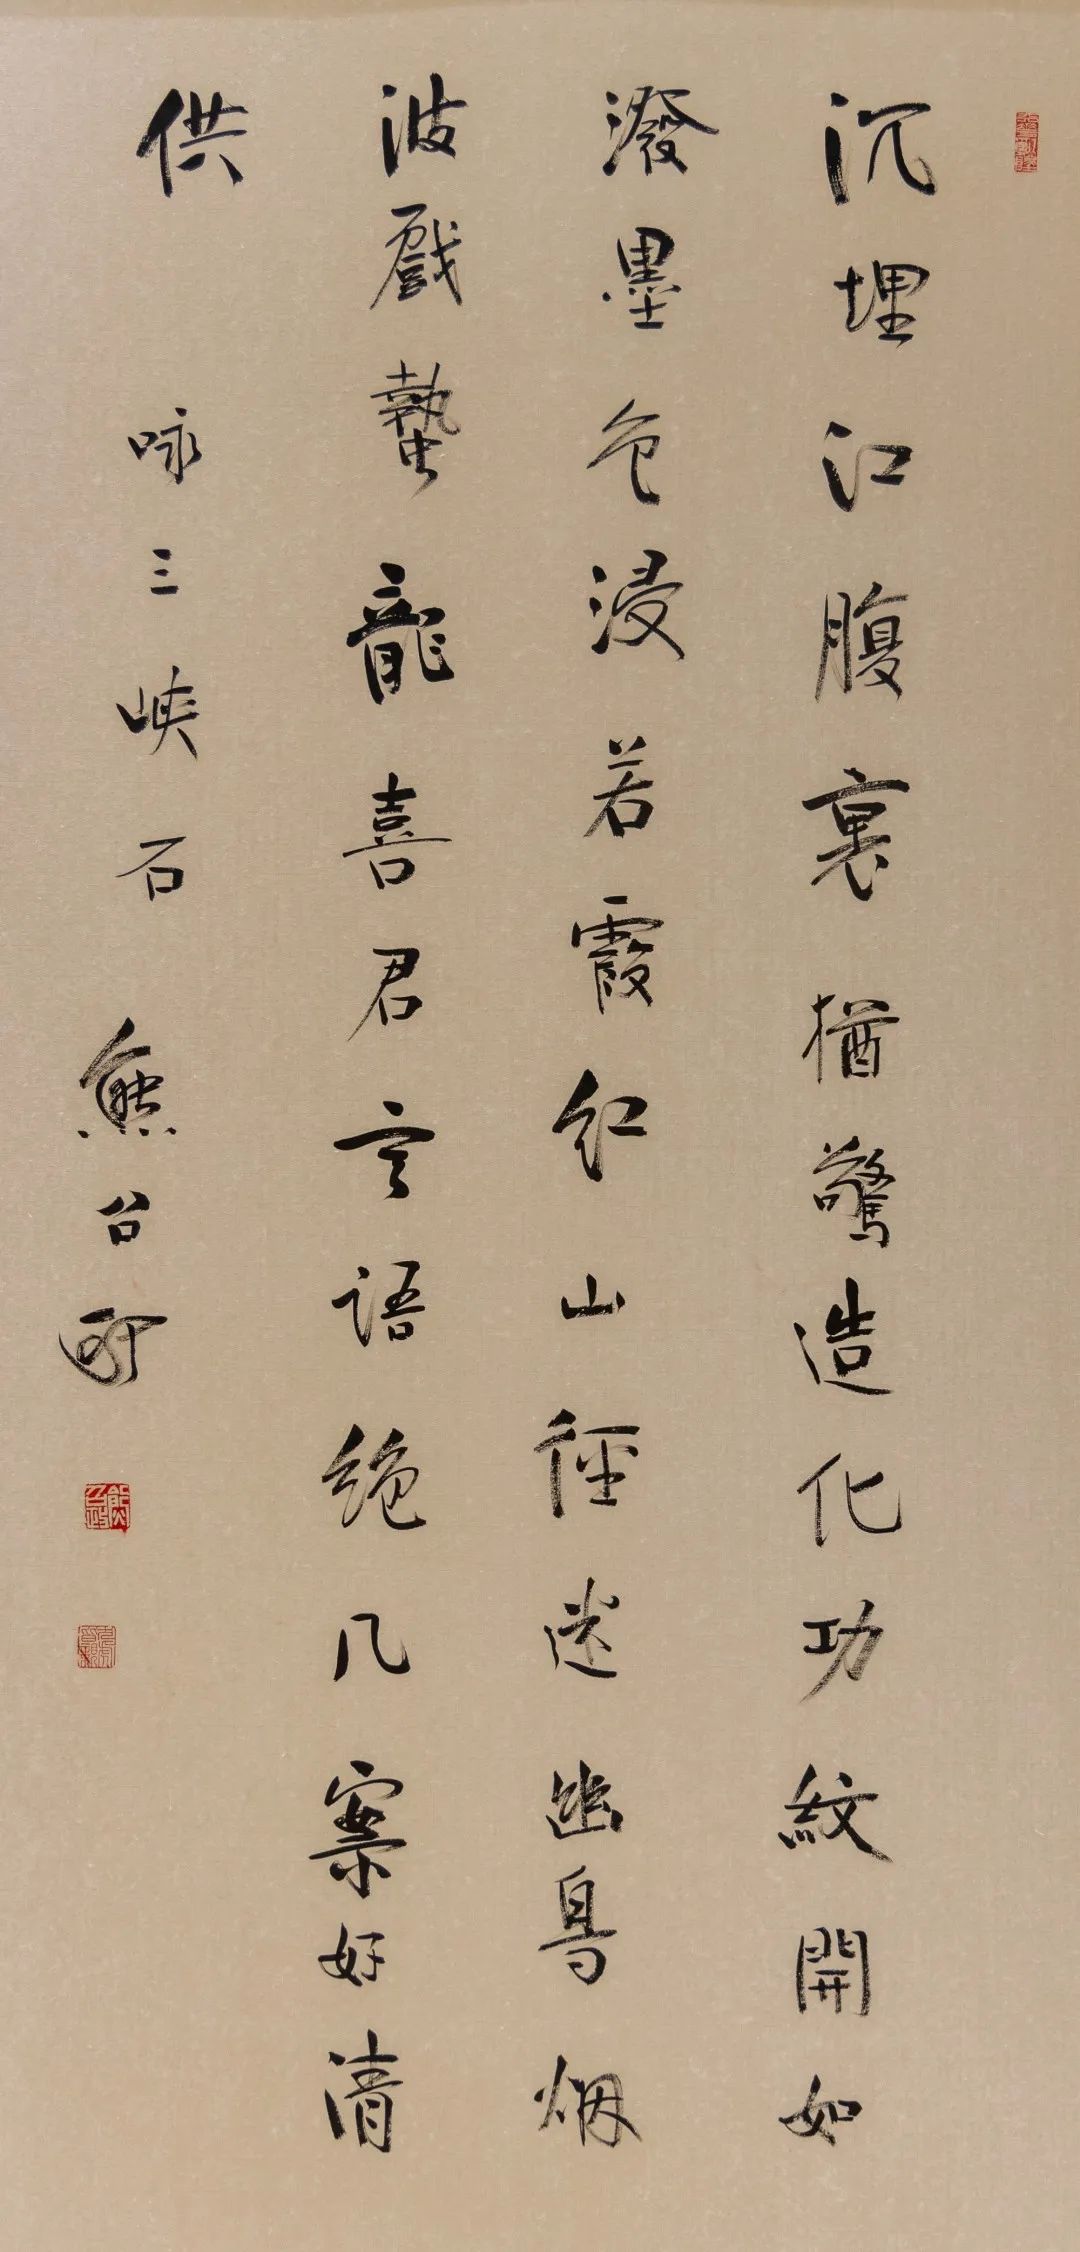 沉埋江腹裏猶驚造化功紋開如
潑墨色浸若霞紅山徑迷幽鳥烟
波戲蟄龍喜君言語絶几案好清
供 咏三峽石 熊召政